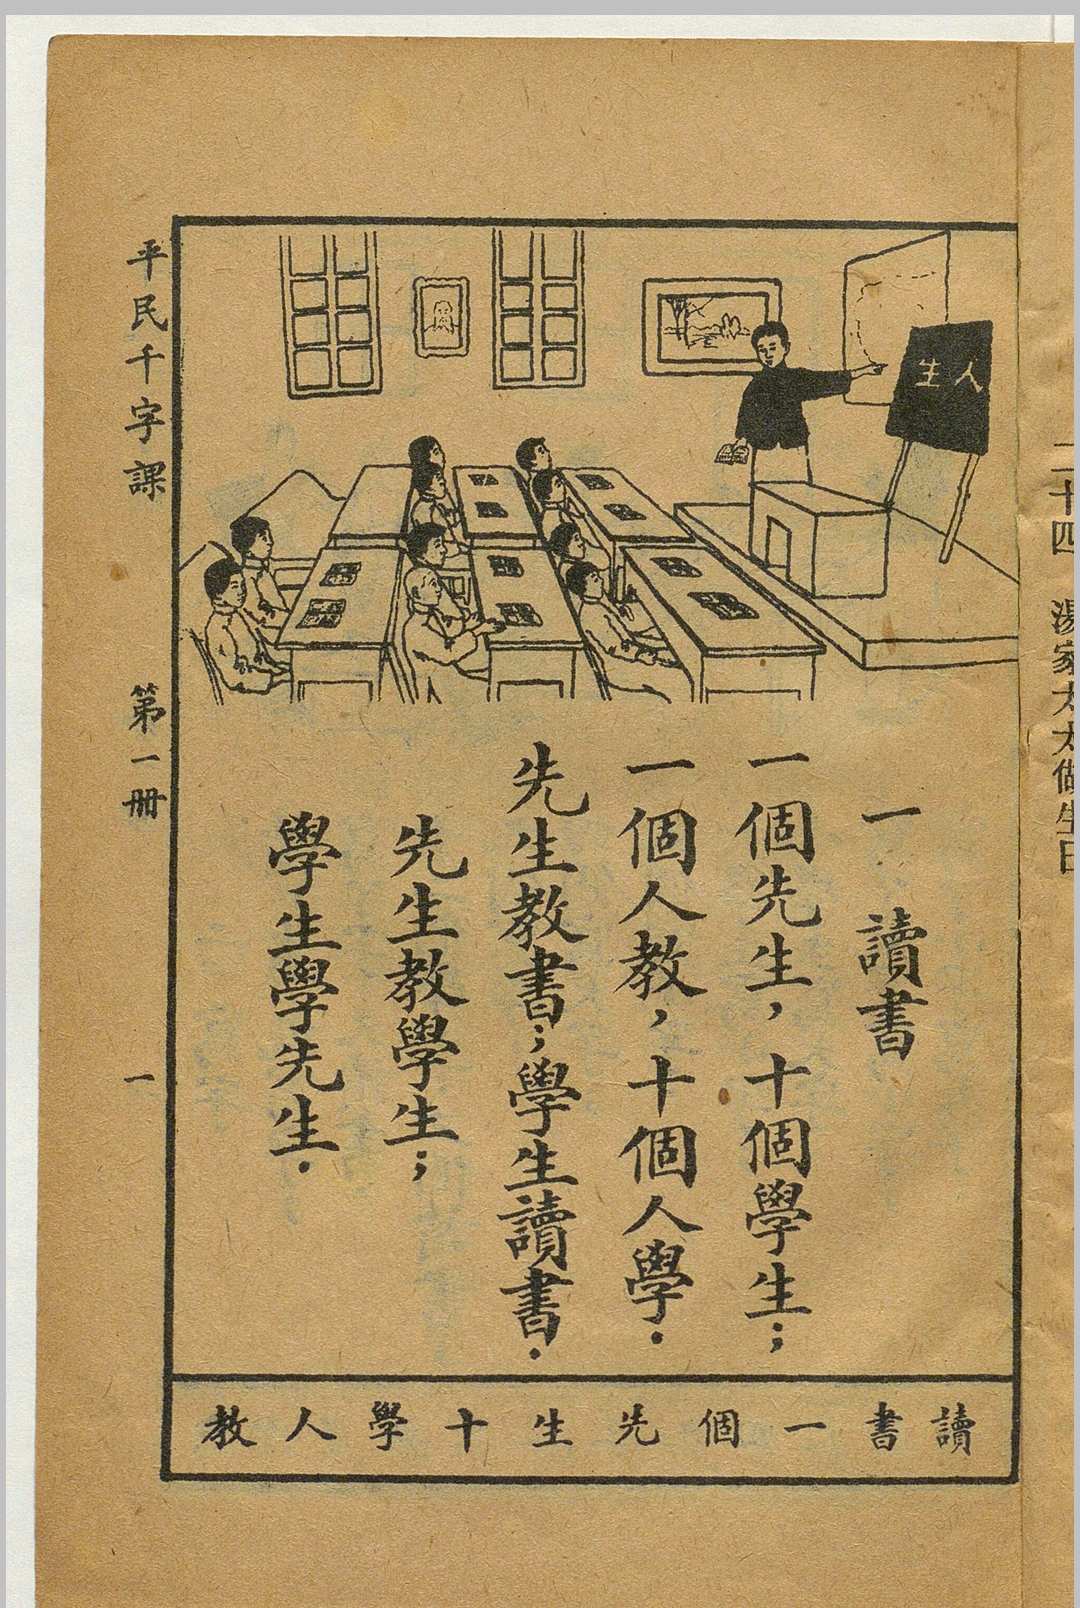 二十四 湯家太太做生日
人生
一 讀書
一個先生，十個學生；
一個人教，十個人學．
先生教書；學生讀書．
先生教學生；
學生學先生．
讀書一個先生十學人教
平民千字課 第一冊 一